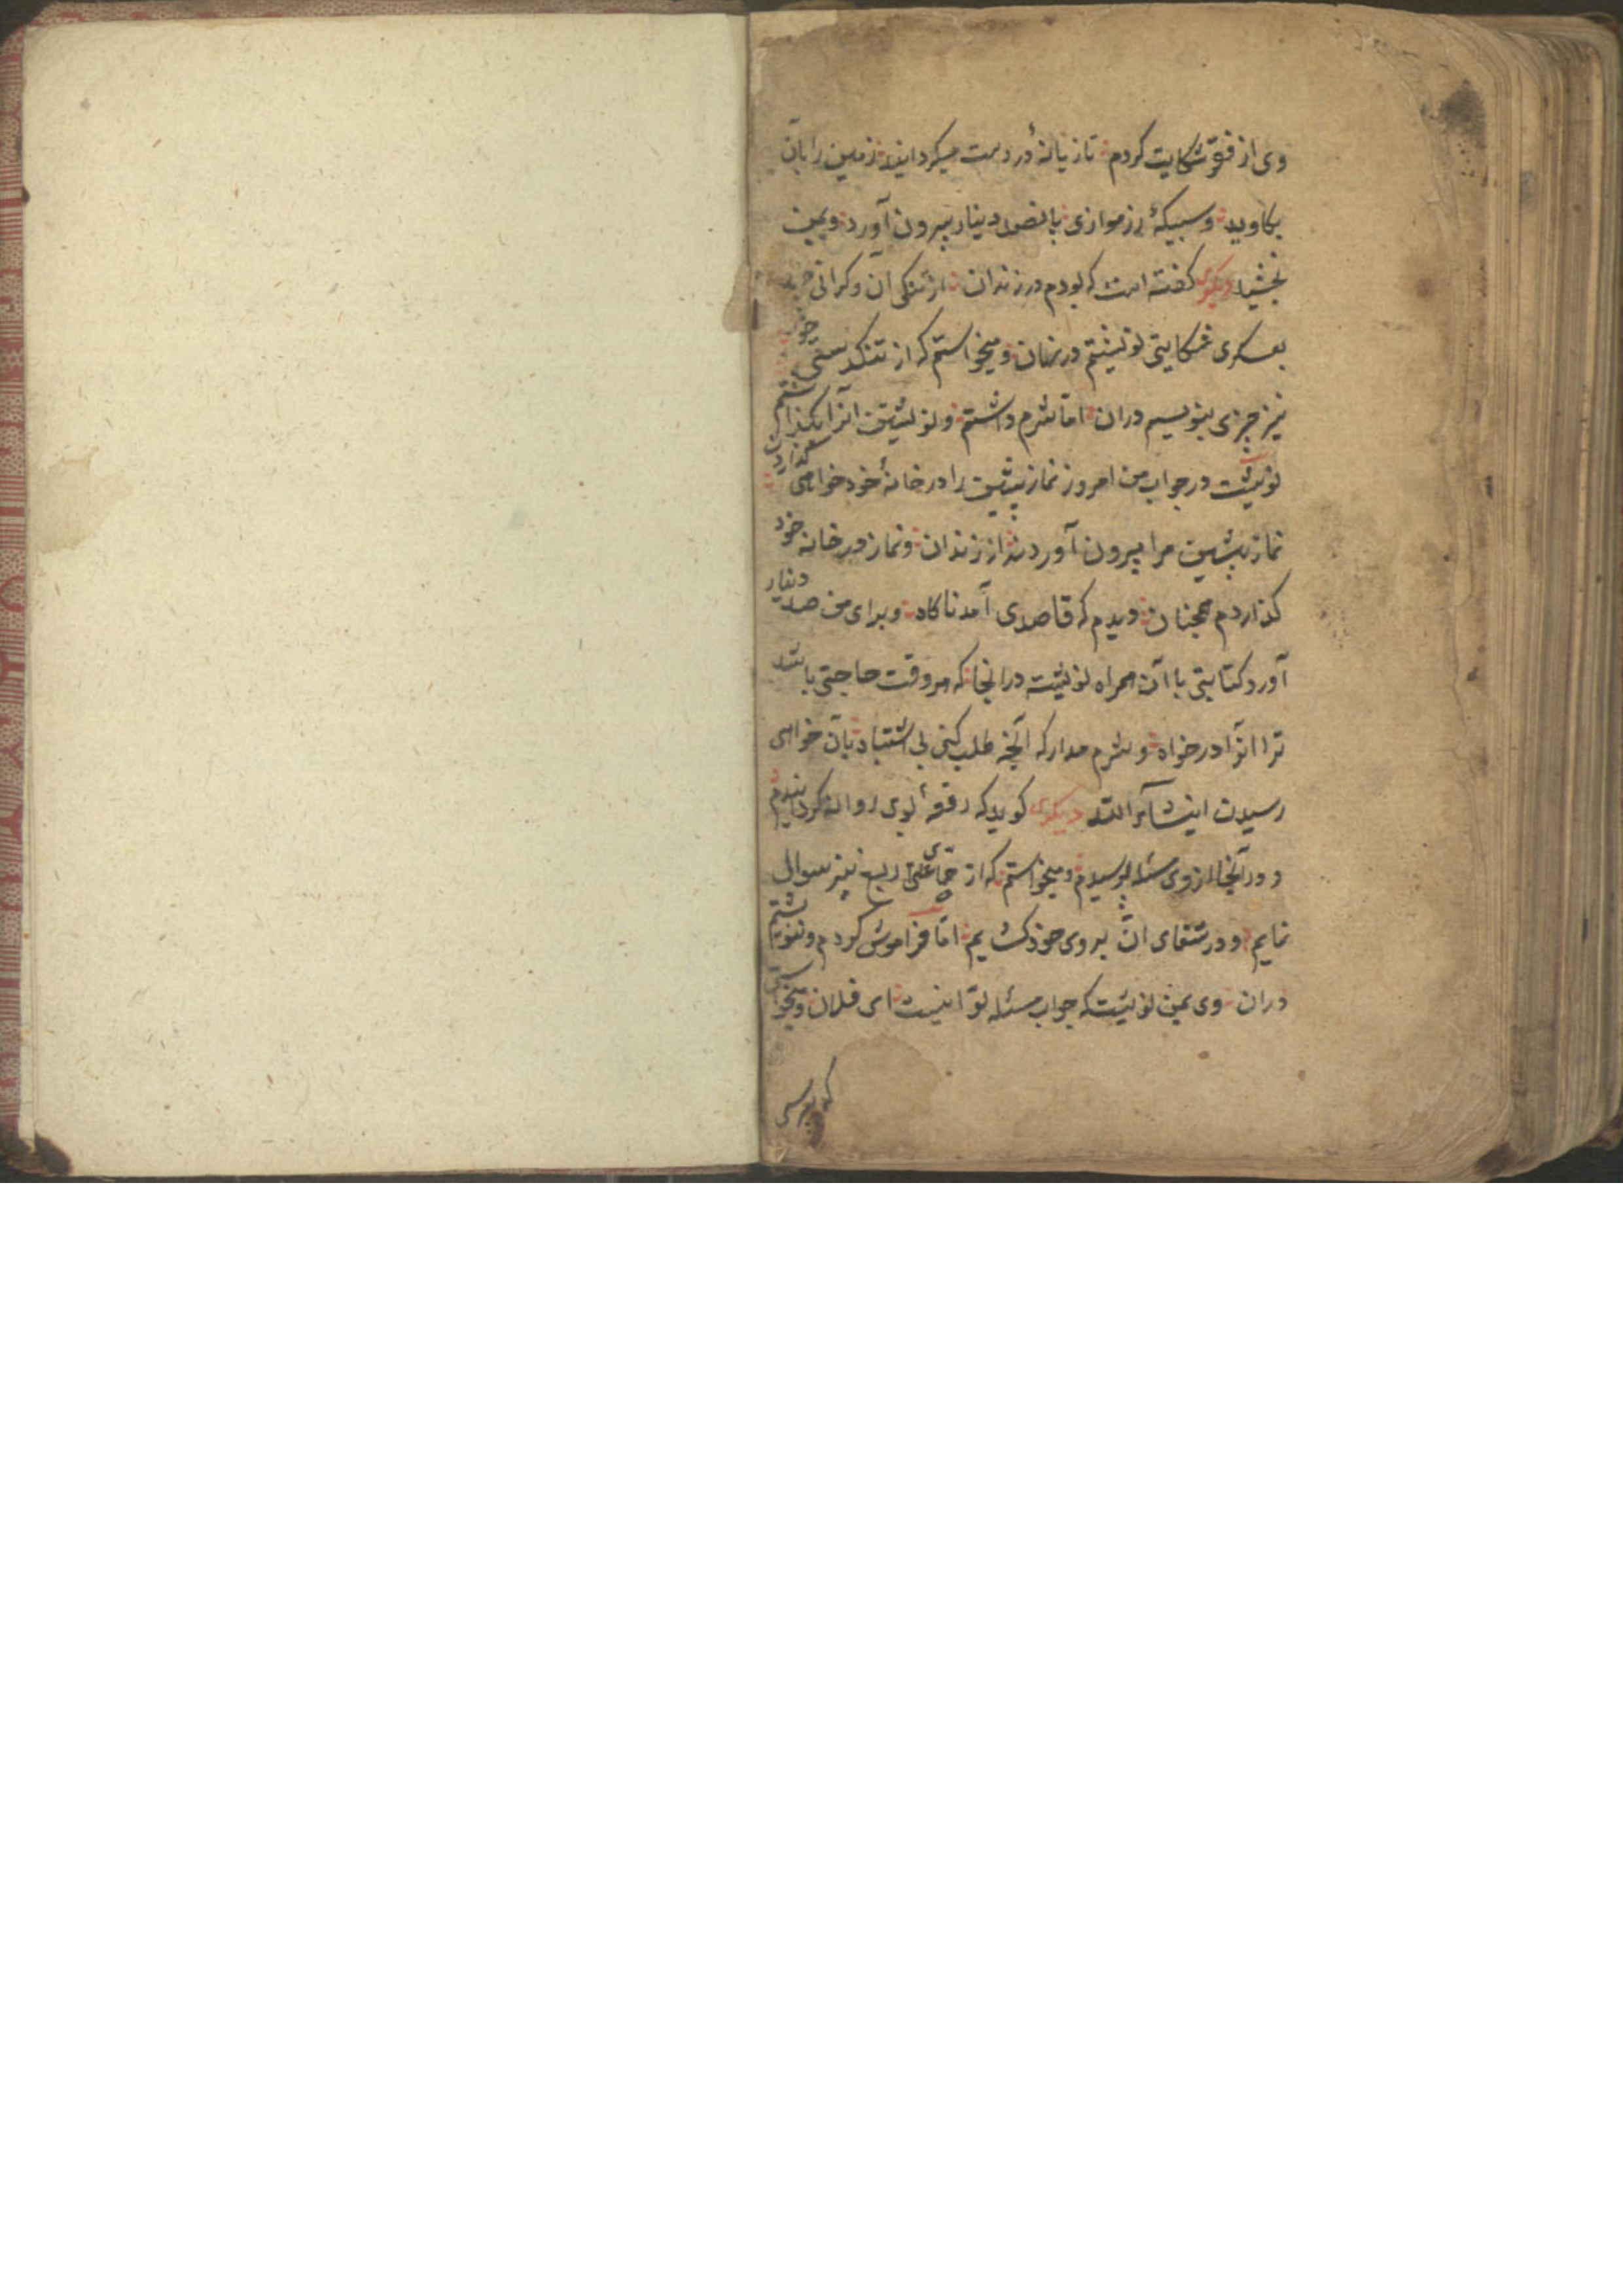 وی از فقر شکایت کردم تازیانهٔ در دست میکردانید زمین را بآن
بکاوید و سبیکهٔ زر موازی پانصد دینار بیرون آورد و بمن
بخشید دیکری کفته است که بودم در زندان از تنکی آن و کرانی
بعسکری شکایتی نوشتم در نهان و میخواستم که از تنکدستی خود
نیز چیزی بنویسم دران اما شرم داشتم و نوشتن آنرا بکذاشتم
نوشت در جواب من امروز نماز پیشین را در خانهٔ خود خواهی کذاردن
نماز پیشین مرا بیرون آوردند از زندان و نماز در خانه خود
کذاردم همچنان دیدم که قاصدی آمد ناکاه و برای من صد دینار
آورد کتابتی با آن همراه نوشته در انجا که هر وقت حاجتی باشد
ترا انرا درخواه و شرم مدار که آنچه طلب کنی بی اشتباه بآن خواهی
رسیدن انشاء الله دیکری کوید که رقعهٔ بوی روانه کردانیدم
و در آنجا از وی مسئله پرسیدم و میخواستم که از حمّای ربع نیز سوال
نمایم و در شفای ان بروی خود کشایم اما فراموش کردم و ننوشتم
دران وی بمن نوشت که جواب مسئله تو اینست ای فلان و میخواستی
که بپرسی